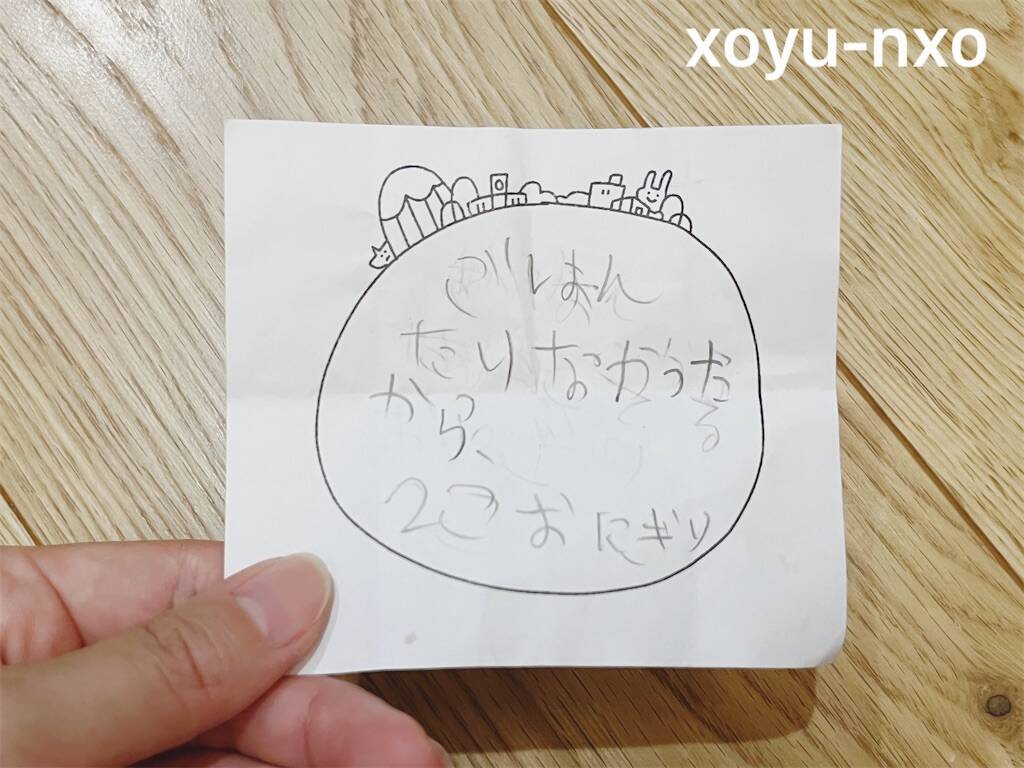 xoyu-nxo
ごはん
たりなかった
から、
2こおにぎり